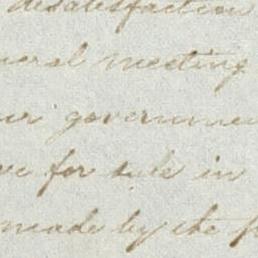 disatisfaction
neral meeting
ur governmen
ve for sale in
made by the f